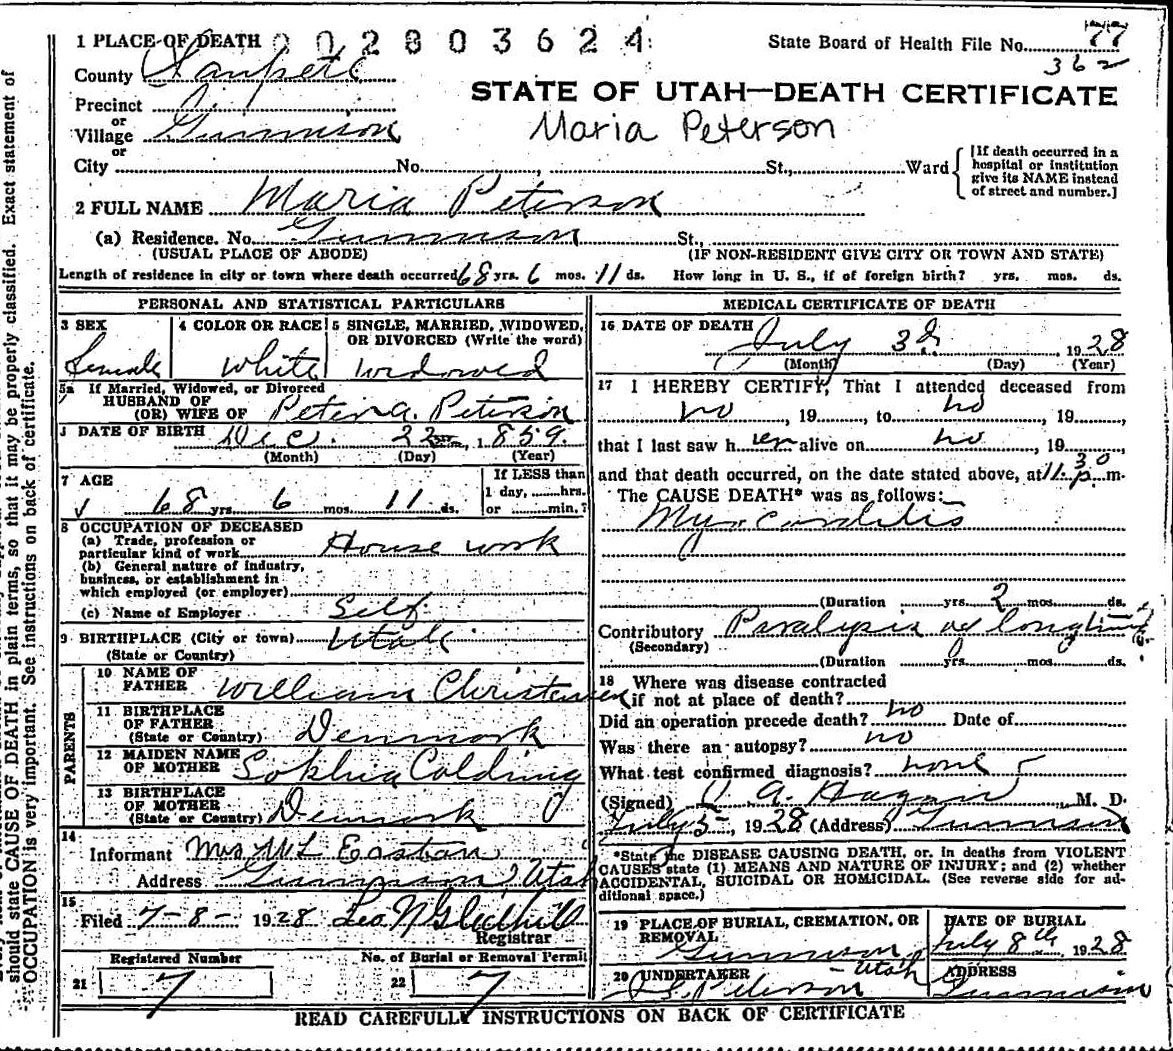 1 PLACE OF DEATH 002803624
State Board of Health File No. 77
362
County Sanpete
STATE OF UTAH—DEATH CERTIFICATE
Precinct
or
Village Gunnison
Maria Peterson
or
City No. St., Ward
[If death occurred in a hospital or institution give its NAME instead of street and number.]
2 FULL NAME Maria Peterson
(a) Residence. No. Gunnison St.,
(USUAL PLACE OF ABODE) (IF NON-RESIDENT GIVE CITY OR TOWN AND STATE)
Length of residence in city or town where death occurred 68 yrs. 6 mos. 11 ds. How long in U. S., if of foreign birth? yrs. mos. ds.
PERSONAL AND STATISTICAL PARTICULARS
3 SEX 4 COLOR OR RACE 5 SINGLE, MARRIED, WIDOWED,
OR DIVORCED (Write the word)
female white widowed
5a If Married, Widowed, or Divorced
HUSBAND OF
(OR) WIFE OF Peter A. Peterson
DATE OF BIRTH Dec. 22 1859.
(Month) (Day) (Year)
7 AGE If LESS than
1 day, hrs.
68 yrs. 6 mos. 11 ds. or min.?
8 OCCUPATION OF DECEASED
(a) Trade, profession or
particular kind of work House work
(b) General nature of industry,
business, or establishment in
which employed (or employer)
(c) Name of Employer Self.
9 BIRTHPLACE (City or town) Utah
(State or Country)
PARENTS
10 NAME OF
FATHER William Christensen
11 BIRTHPLACE
OF FATHER
(State or Country) Denmark
12 MAIDEN NAME
OF MOTHER Sophia Colding
13 BIRTHPLACE
OF MOTHER
(State or Country) Denmark
14
Informant Mrs WL Eastan
Address Gunnison Utah
15
Filed 7-8- 1928 Leo N Gledhill
Registrar
Registered Number No. of Burial or Removal Permit
21 7 22 7
MEDICAL CERTIFICATE OF DEATH
16 DATE OF DEATH July 3d 1928
(Month) (Day) (Year)
17 I HEREBY CERTIFY, That I attended deceased from
no, 19, to no, 19
that I last saw her alive on no, 19
and that death occurred, on the date stated above, at 11.30 p.m.
The CAUSE DEATH* was as follows:
Myocarditis
(Duration yrs. 2 mos. ds.
Contributory Paralysis of long time
(Secondary)
(Duration yrs. mos. ds.
18 Where was disease contracted
if not at place of death?
Did an operation precede death? no Date of
Was there an autopsy? no
What test confirmed diagnosis? none
(Signed) A. Hagan, M. D.
July 5, 1928 (Address) Gunnison
*State the DISEASE CAUSING DEATH, or in deaths from VIOLENT
CAUSES state (1) MEANS AND NATURE OF INJURY; and (2) whether
ACCIDENTAL, SUICIDAL OR HOMICIDAL. (See reverse side for ad-
ditional space.)
19 PLACE OF BURIAL, CREMATION, OR DATE OF BURIAL
REMOVAL
Gunnison, Utah July 8th 1928
20 UNDERTAKER ADDRESS
Peterson Gunnison
READ CAREFULLY INSTRUCTIONS ON BACK OF CERTIFICATE
should state CAUSE OF DEATH in plain terms, so that it may be properly classified. Exact statement of
OCCUPATION is very important. See instructions on back of certificate.